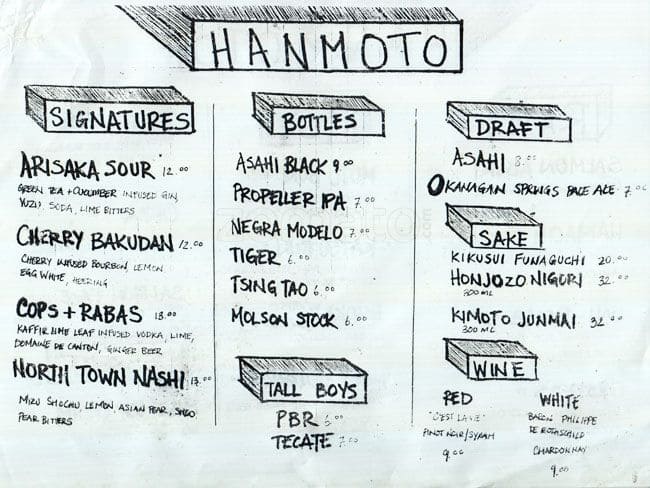 HANMOTO
SIGNATURES
ARISAKA SOUR 12.00
GREEN TEA + CUCUMBER INFUSED GIN,
YUZU, SODA, LIME BITTERS
CHERRY BAKUDAN 12.00
CHERRY INFUSED BOURBON, LEMON
EGG WHITE, HEERING
COPS + RABAS 13.00
KAFFIR LIME LEAF INFUSED VODKA, LIME,
DOMAINE DE CANTON, GINGER BEER
NORTH TOWN NASHI
MIZU SHOCHU, LEMON, ASIAN PEAR, SHISO
PEAR BITTERS
BOTTLES
ASAHI BLACK 9.00
PROPELLER IPA 7.00
NEGRA MODELO 7.00
TIGER 6.00
TSING TAO 6.00
MOLSON STOCK 6.00
TALL BOYS
PBR 6.00
TECATE 7.00
DRAFT
ASAHI 8.00
OKANAGAN SPRINGS PALE ALE 7.00
SAKE
KIKUSUI FUNAGUCHI 20.00
HONJOZO NIGORI 32.00
300 ML
KIMOTO JUNMAI 32.00
300 ML
WINE
RED
"C'EST LA VIE"
PINOT NOIR/SYRAH
9.00
WHITE
BARON PHILIPPE
DE ROTHSCHILD
CHARDONNAY
9.00